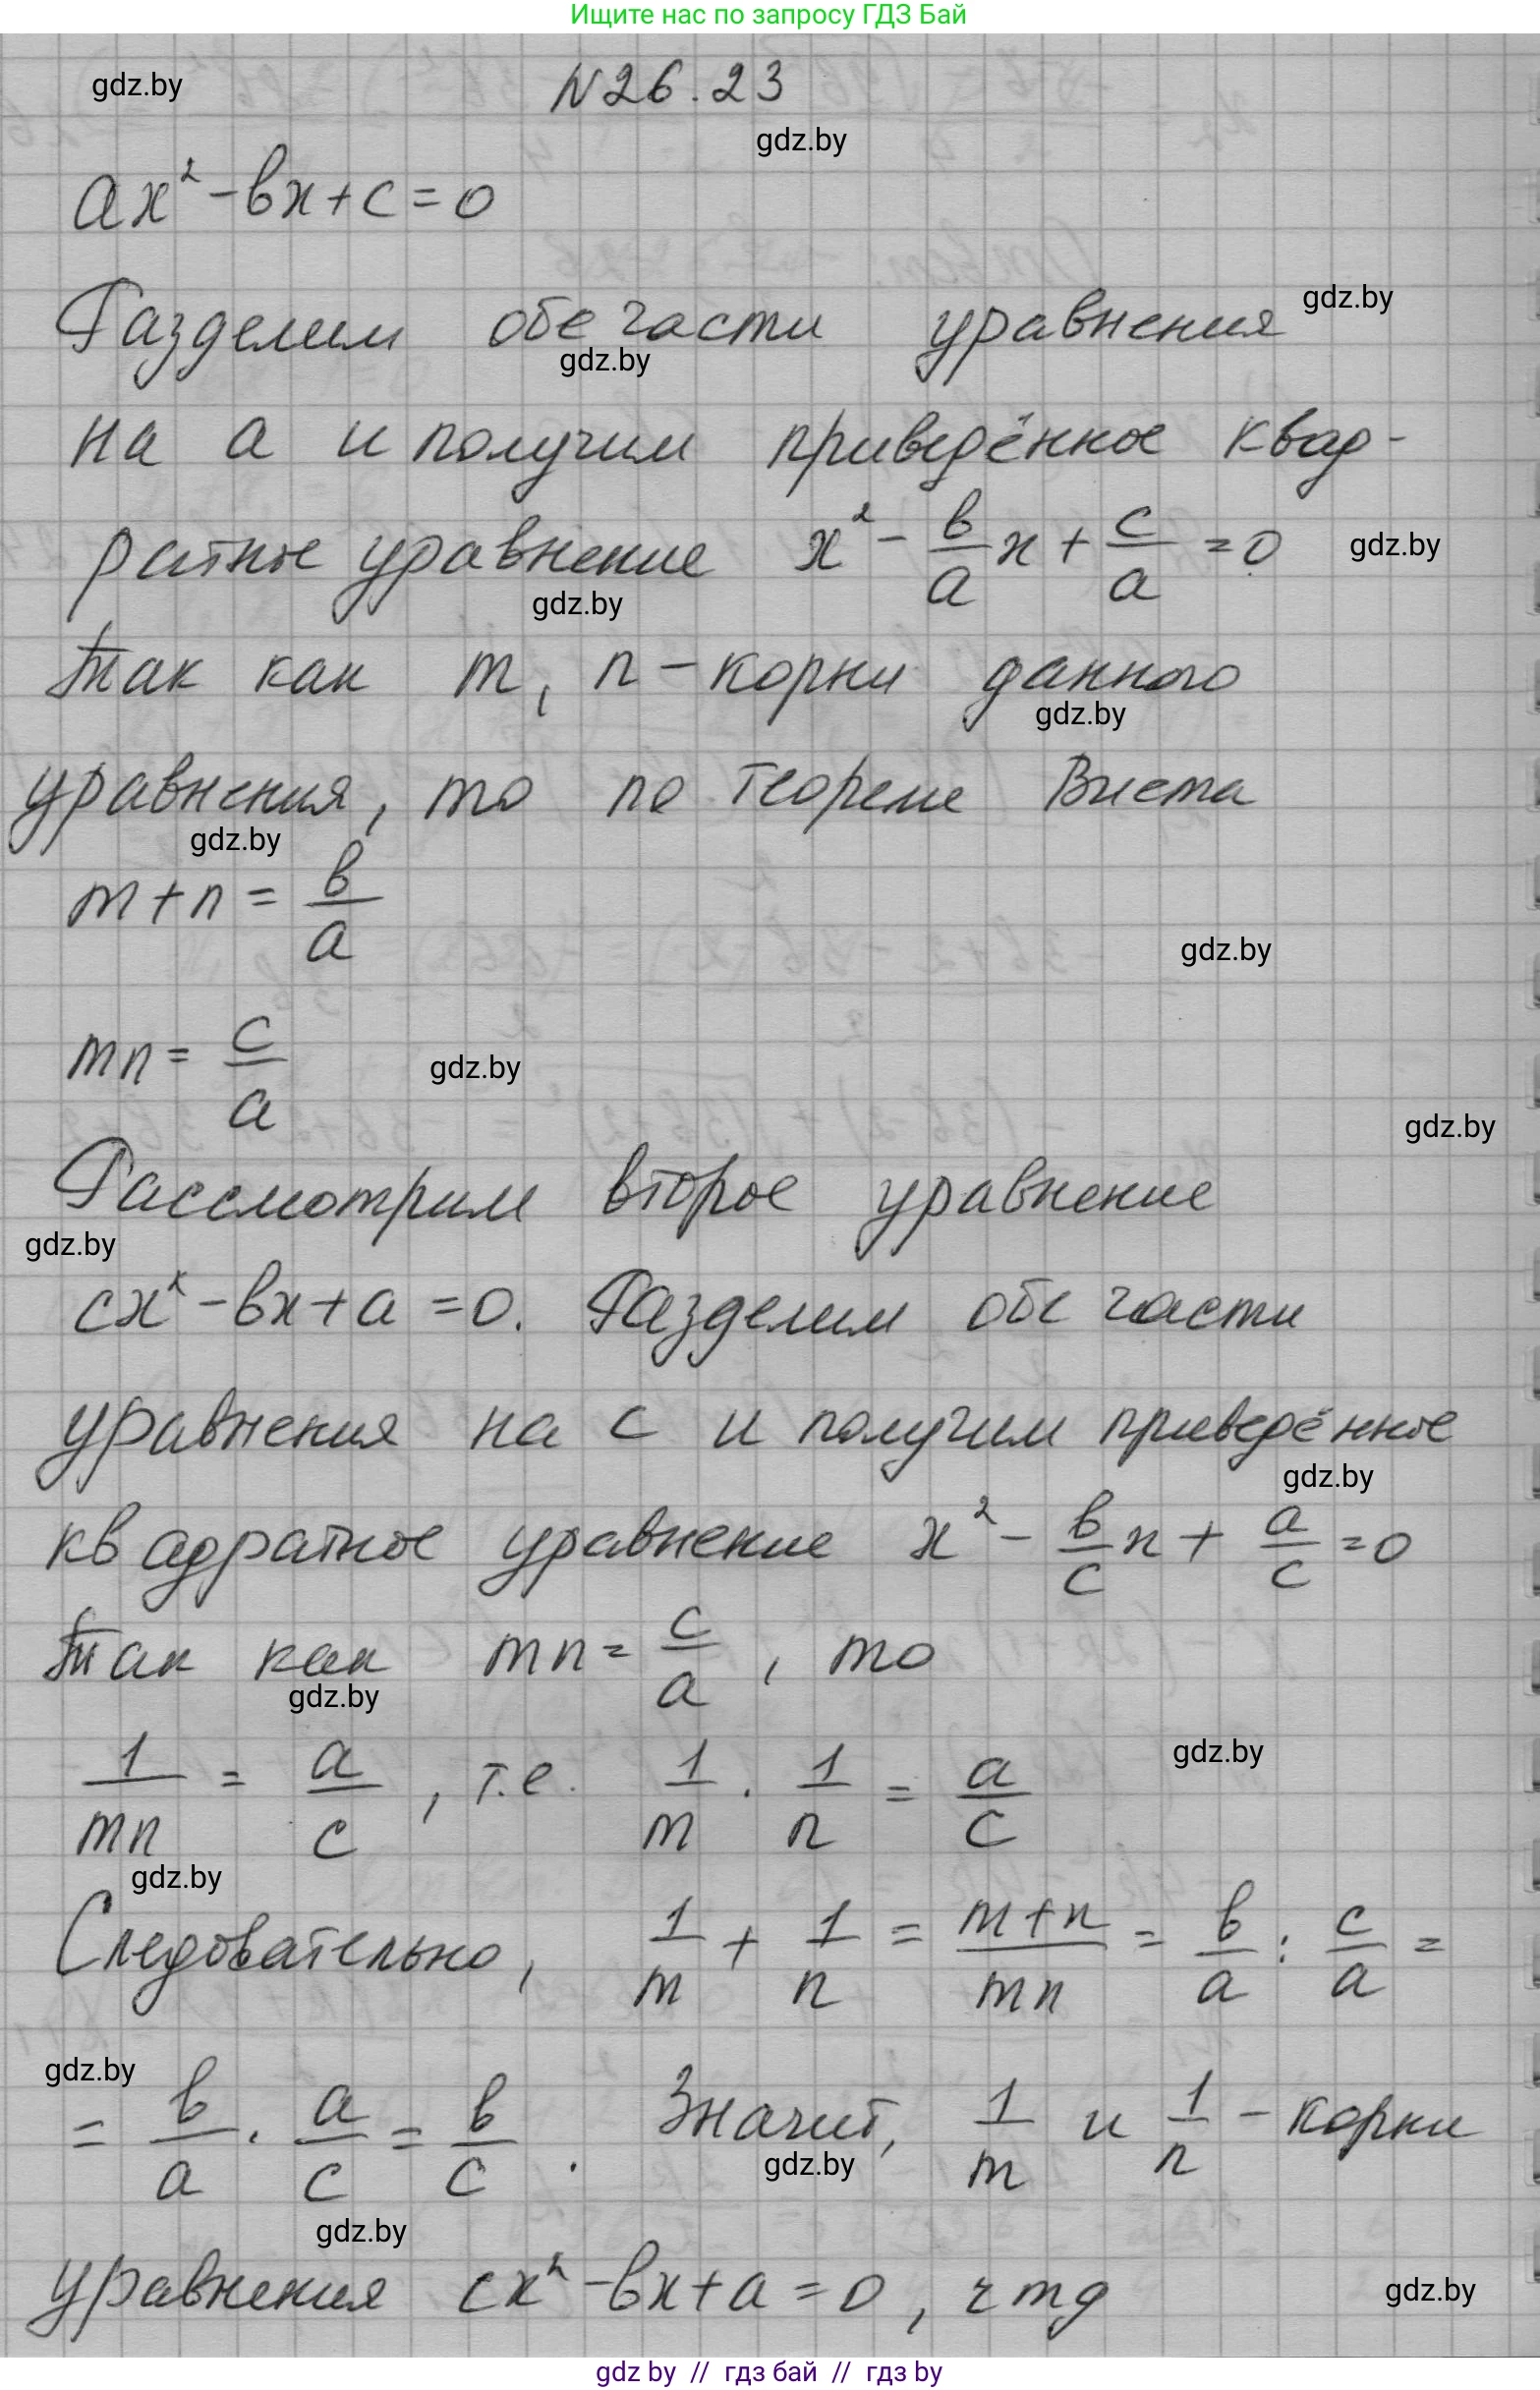 Ищите нас по запросу ГДЗ Бай
gdz.by
N26.23
gdz.by
ax² - bx + c = 0
gdz.by
Разделим обе части уравнения
gdz.by
на a и получим приведённое квад-
ратное уравнение x² - b/a x + c/a = 0
gdz.by
gdz.by
Так как m, n - корни данного
gdz.by
уравнения, то по теореме Виета
gdz.by
m + n = b/a
gdz.by
mn = c/a
gdz.by
gdz.by
Рассмотрим второе уравнение
gdz.by
cx² - bx + a = 0. Разделим обе части
уравнения на c и получим приведённое
gdz.by
квадратное уравнение x² - b/c x + a/c = 0
Так как mn = c/a, то
gdz.by
1/mn = a/c, т.е. 1/m · 1/n = a/c
gdz.by
gdz.by
Следовательно, 1/m + 1/n = m+n/mn = b/a : c/a =
gdz.by
= b/a · a/c = b/c. Значит, 1/m и 1/n - корни
gdz.by
gdz.by
уравнения cx² - bx + a = 0, чтд
gdz.by
gdz by // гдз бай // гдз by